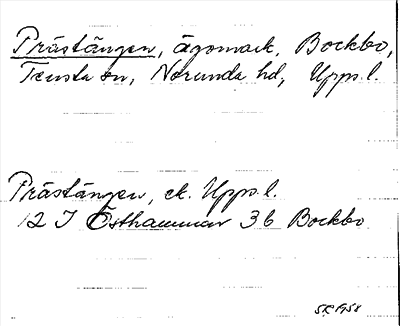 Prästängen, ägomark, Bockbo,
Tensta sn, Norunda hd, Upps.l.
Prästängen, ek. Upps.l.
12 I Östhammar 3b Bockbo
1958